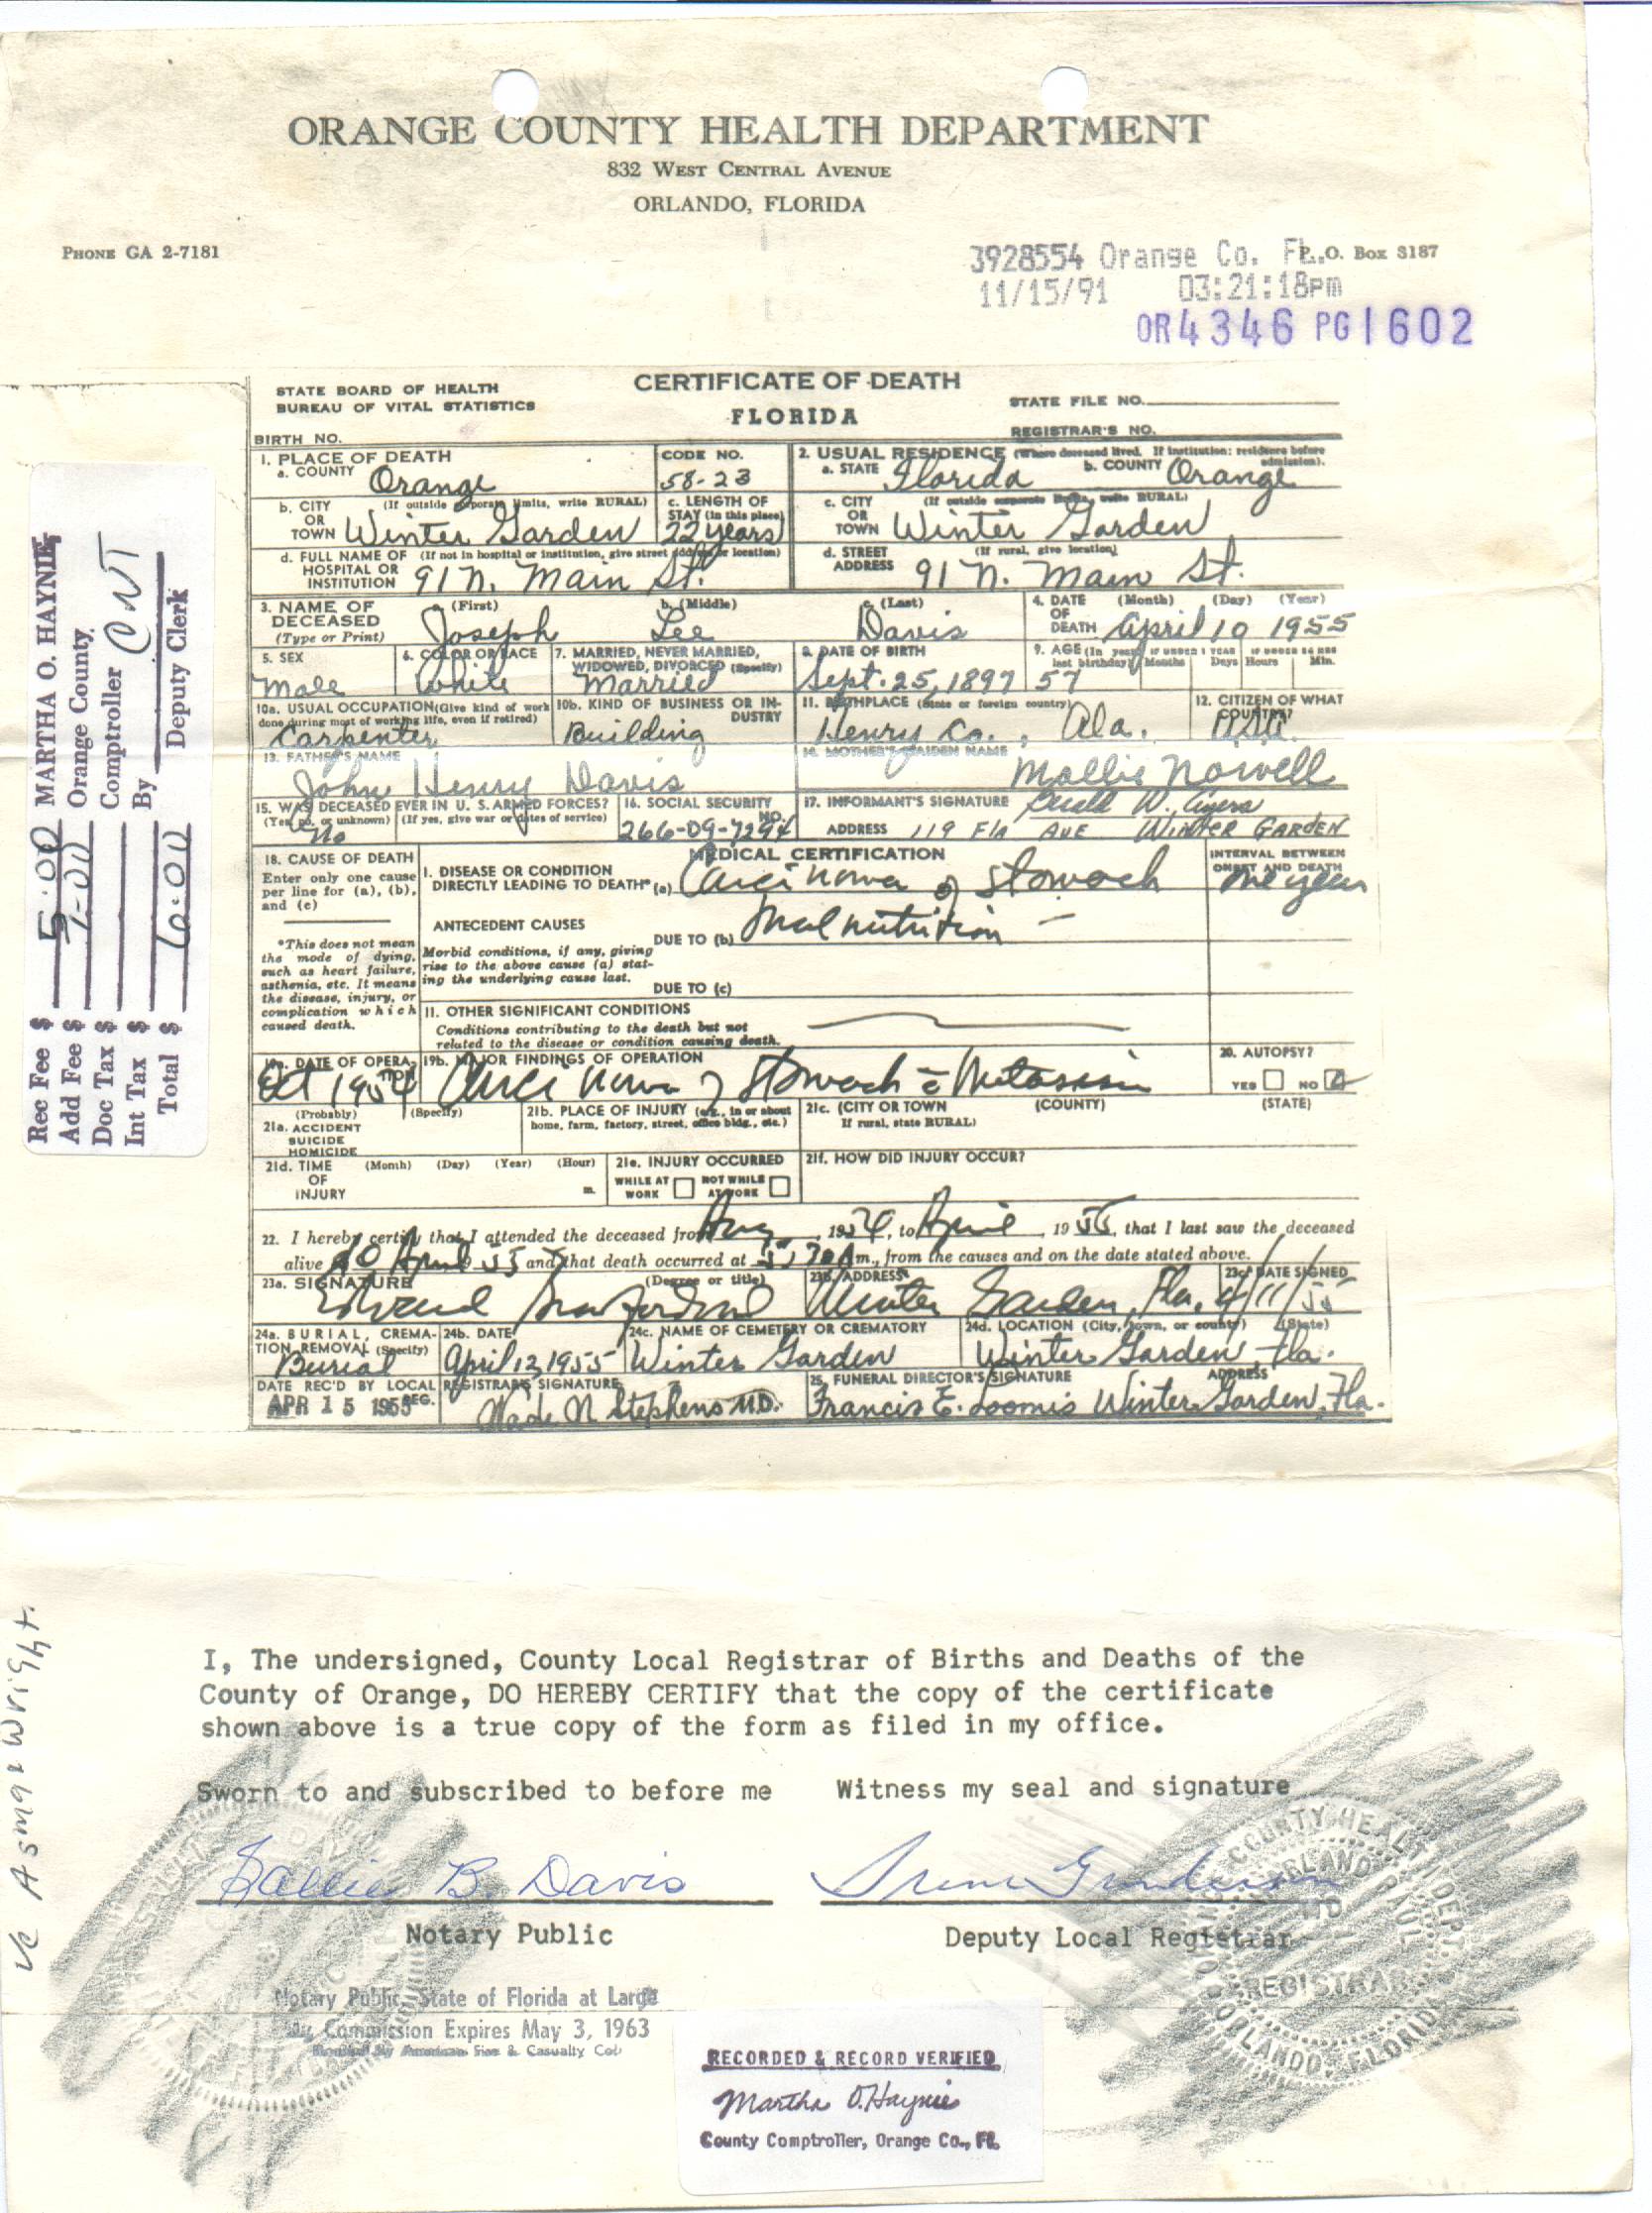 ORANGE COUNTY HEALTH DEPARTMENT
832 WEST CENTRAL AVENUE
ORLANDO, FLORIDA
PHONE GA 2-7181
P. O. Box 3187
3928554 Orange Co. FL.
11/15/91 03:21:18pm
OR4346 PG1602
STATE BOARD OF HEALTH
BUREAU OF VITAL STATISTICS
CERTIFICATE OF DEATH
FLORIDA
STATE FILE NO.
REGISTRAR'S NO.
BIRTH NO.
1. PLACE OF DEATH
a. COUNTY Orange
CODE NO.
58-23
2. USUAL RESIDENCE (Where deceased lived. If institution: residence before admission).
a. STATE Florida b. COUNTY Orange
b. CITY OR TOWN (If outside corporate limits, write RURAL) Winter Garden
c. LENGTH OF STAY (in this place) 22 years
c. CITY OR TOWN (If outside corporate limits, write RURAL) Winter Garden
d. FULL NAME OF HOSPITAL OR INSTITUTION (If not in hospital or institution, give street address or location) 91 N. Main St.
d. STREET ADDRESS (If rural, give location) 91 N. Main St.
3. NAME OF DECEASED (Type or Print)
a. (First) b. (Middle) c. (Last)
Joseph Lee Davis
4. DATE OF DEATH (Month) (Day) (Year)
April 10 1955
5. SEX Male
6. COLOR OR RACE White
7. MARRIED, NEVER MARRIED, WIDOWED, DIVORCED (Specify) Married
8. DATE OF BIRTH Sept. 25, 1897
9. AGE (In years last birthday) 57 IF UNDER 1 YEAR Months Days IF UNDER 24 HRS Hours Min.
10a. USUAL OCCUPATION (Give kind of work done during most of working life, even if retired) Carpenter
10b. KIND OF BUSINESS OR INDUSTRY Building
11. BIRTHPLACE (State or foreign country) Henry Co., Ala.
12. CITIZEN OF WHAT COUNTRY?
13. FATHER'S NAME
John Henry Davis
14. MOTHER'S MAIDEN NAME
Mollie Norvell
15. WAS DECEASED EVER IN U. S. ARMED FORCES?
(Yes, no, or unknown) (If yes, give war or dates of service)
No
16. SOCIAL SECURITY NO.
266-09-7294
17. INFORMANT'S SIGNATURE W. Ayers
ADDRESS 119 Fla Ave Winter Garden
18. CAUSE OF DEATH
Enter only one cause per line for (a), (b), and (c)
*This does not mean the mode of dying, such as heart failure, asthenia, etc. It means the disease, injury, or complication which caused death.
MEDICAL CERTIFICATION
INTERVAL BETWEEN ONSET AND DEATH
I. DISEASE OR CONDITION DIRECTLY LEADING TO DEATH* (a) Carcinoma of Stomach one year
ANTECEDENT CAUSES
Morbid conditions, if any, giving rise to the above cause (a) stating the underlying cause last.
DUE TO (b) Malnutrition
DUE TO (c)
II. OTHER SIGNIFICANT CONDITIONS
Conditions contributing to the death but not related to the disease or condition causing death.
19a. DATE OF OPERATION Oct 1954
19b. MAJOR FINDINGS OF OPERATION
Carcinoma of Stomach c̄ Metastasis
20. AUTOPSY?
YES NO
21a. ACCIDENT SUICIDE HOMICIDE (Probably) (Specify)
21b. PLACE OF INJURY (e.g., in or about home, farm, factory, street, office bldg., etc.)
21c. (CITY OR TOWN (COUNTY) (STATE)
If rural, state RURAL)
21d. TIME OF INJURY (Month) (Day) (Year) (Hour) m.
21e. INJURY OCCURRED
WHILE AT WORK NOT WHILE AT WORK
21f. HOW DID INJURY OCCUR?
22. I hereby certify that I attended the deceased from Aug, 1954, to April, 1955, that I last saw the deceased
alive 10 April 55 and that death occurred at 5:30 Am., from the causes and on the date stated above.
23a. SIGNATURE (Degree or title)
23b. ADDRESS Winter Garden, Fla.
23c. DATE SIGNED 4/11/55
24a. BURIAL, CREMATION, REMOVAL (Specify) Burial
24b. DATE April 12, 1955
24c. NAME OF CEMETERY OR CREMATORY Winter Garden
24d. LOCATION (City, town, or county) (State) Winter Garden Fla.
DATE REC'D BY LOCAL REG. APR 15 1955
REGISTRAR'S SIGNATURE Wade N Stephens M.D.
25. FUNERAL DIRECTOR'S SIGNATURE ADDRESS
Francis E. Loomis Winter Garden, Fla.
Rec Fee $ 5.00 MARTHA O. HAYNIE,
Add Fee $ 1.00 Orange County
Doc Tax $ Comptroller
Int Tax $ By
Total $ 6.00 Deputy Clerk
I, The undersigned, County Local Registrar of Births and Deaths of the
County of Orange, DO HEREBY CERTIFY that the copy of the certificate
shown above is a true copy of the form as filed in my office.
Sworn to and subscribed to before me Witness my seal and signature
Sallie B. Davis Irene Gunderson
Notary Public Deputy Local Registrar
Notary Public, State of Florida at Large
My Commission Expires May 3, 1963
Bonded by American Fire & Casualty Co.
COUNTY HEALTH DEPT.
REGISTRAR
ORLANDO, FLORIDA
RECORDED & RECORD VERIFIED
Martha O. Haynie
County Comptroller, Orange Co., FL